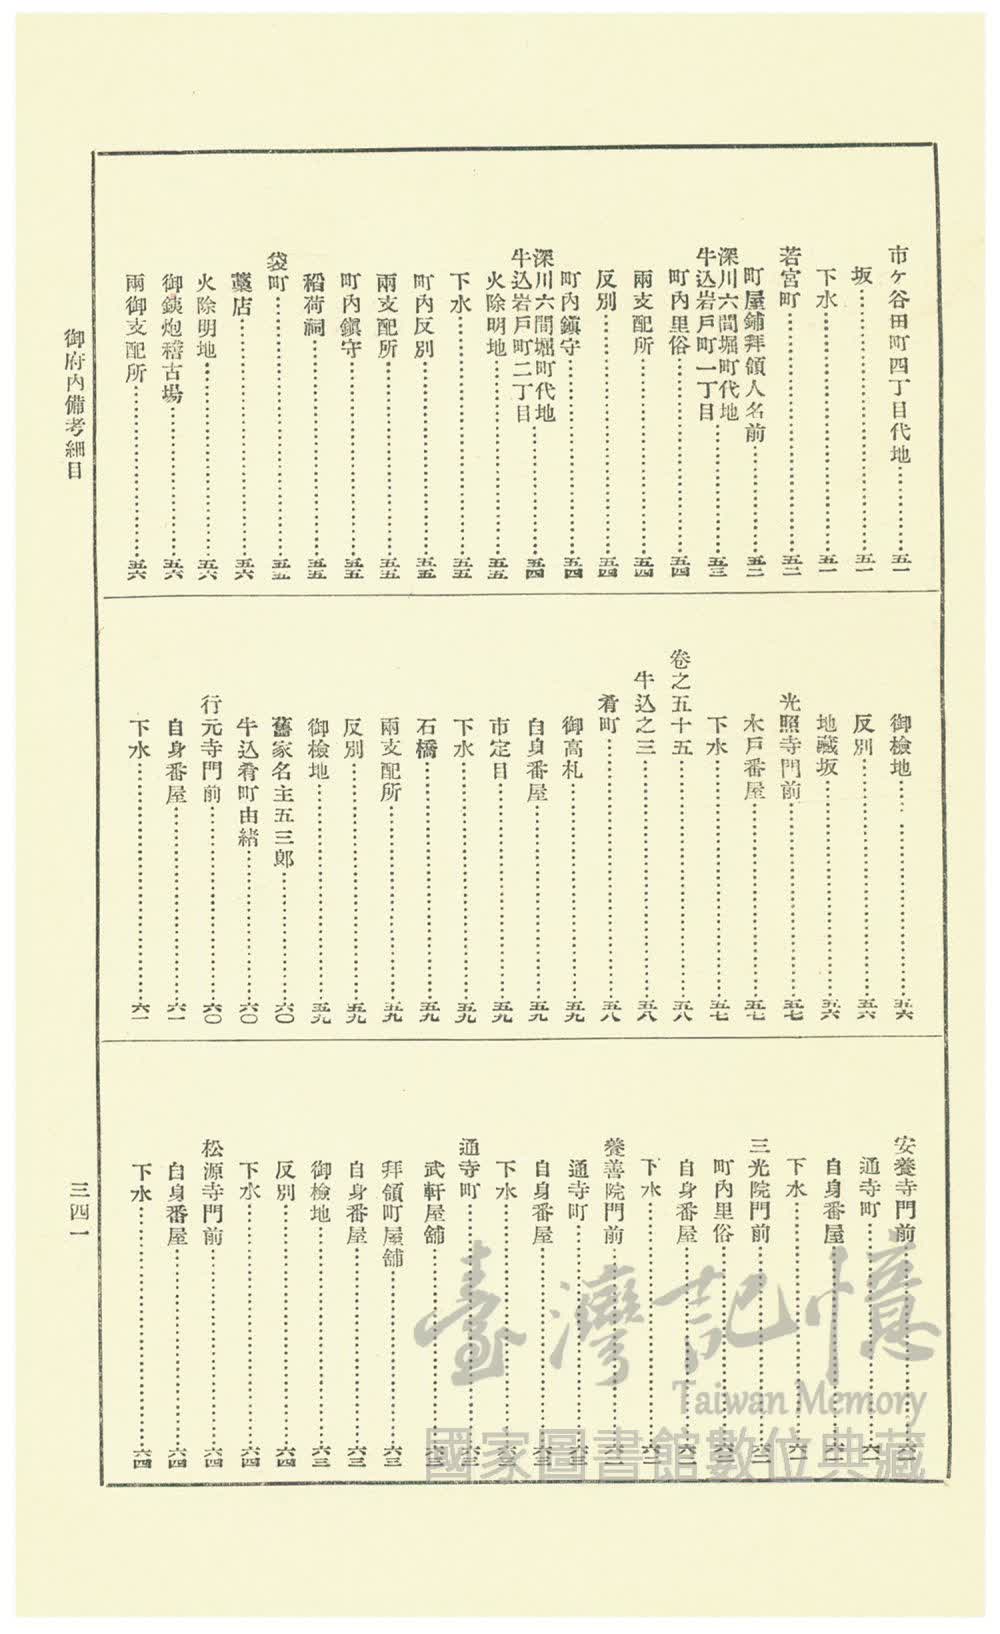 市ケ谷田町四丁目代地…………五一
坂…………五一
下水…………五一
若宮町…………五二
町屋鋪拜領人名前…………五二
深川六間堀町代地
牛込岩戸町一丁目…………五三
町內里俗…………五四
兩支配所…………五四
反別…………五四
町內鎭守…………五四
深川六間堀町代地
牛込岩戸町二丁目…………五四
火除明地…………五五
下水…………五五
町內反別…………五五
兩支配所…………五五
町內鎭守…………五五
稻荷祠…………五五
袋町…………五五
藁店…………五六
火除明地…………五六
御銕炮稽古場…………五六
兩御支配所…………五六
御檢地…………五六
反別…………五六
地藏坂…………五六
光照寺門前…………五七
木戸番屋…………五七
下水…………五七
卷之五十五…………五八
牛込之三…………五八
肴町…………五八
御高札…………五九
自身番屋…………五九
市定目…………五九
下水…………五九
石橋…………五九
兩支配所…………五九
反別…………五九
御檢地…………五九
舊家名主五三郞…………六〇
牛込肴町由緖…………六〇
行元寺門前…………六〇
自身番屋…………六一
下水…………六一
安養寺門前…………
通寺町…………六一
自身番屋…………
下水…………六一
三光院門前…………
町內里俗…………
自身番屋…………
下水…………
養善院門前…………
通寺町…………
自身番屋…………六三
下水…………
通寺町…………
武軒屋舖…………
拜領町屋舖…………六三
自身番屋…………六三
御檢地…………六三
反別…………六四
下水…………六四
松源寺門前…………六四
自身番屋…………六四
下水…………六四
御府內備考細目
三四一
臺灣記憶
Taiwan Memory
國家圖書館數位典藏